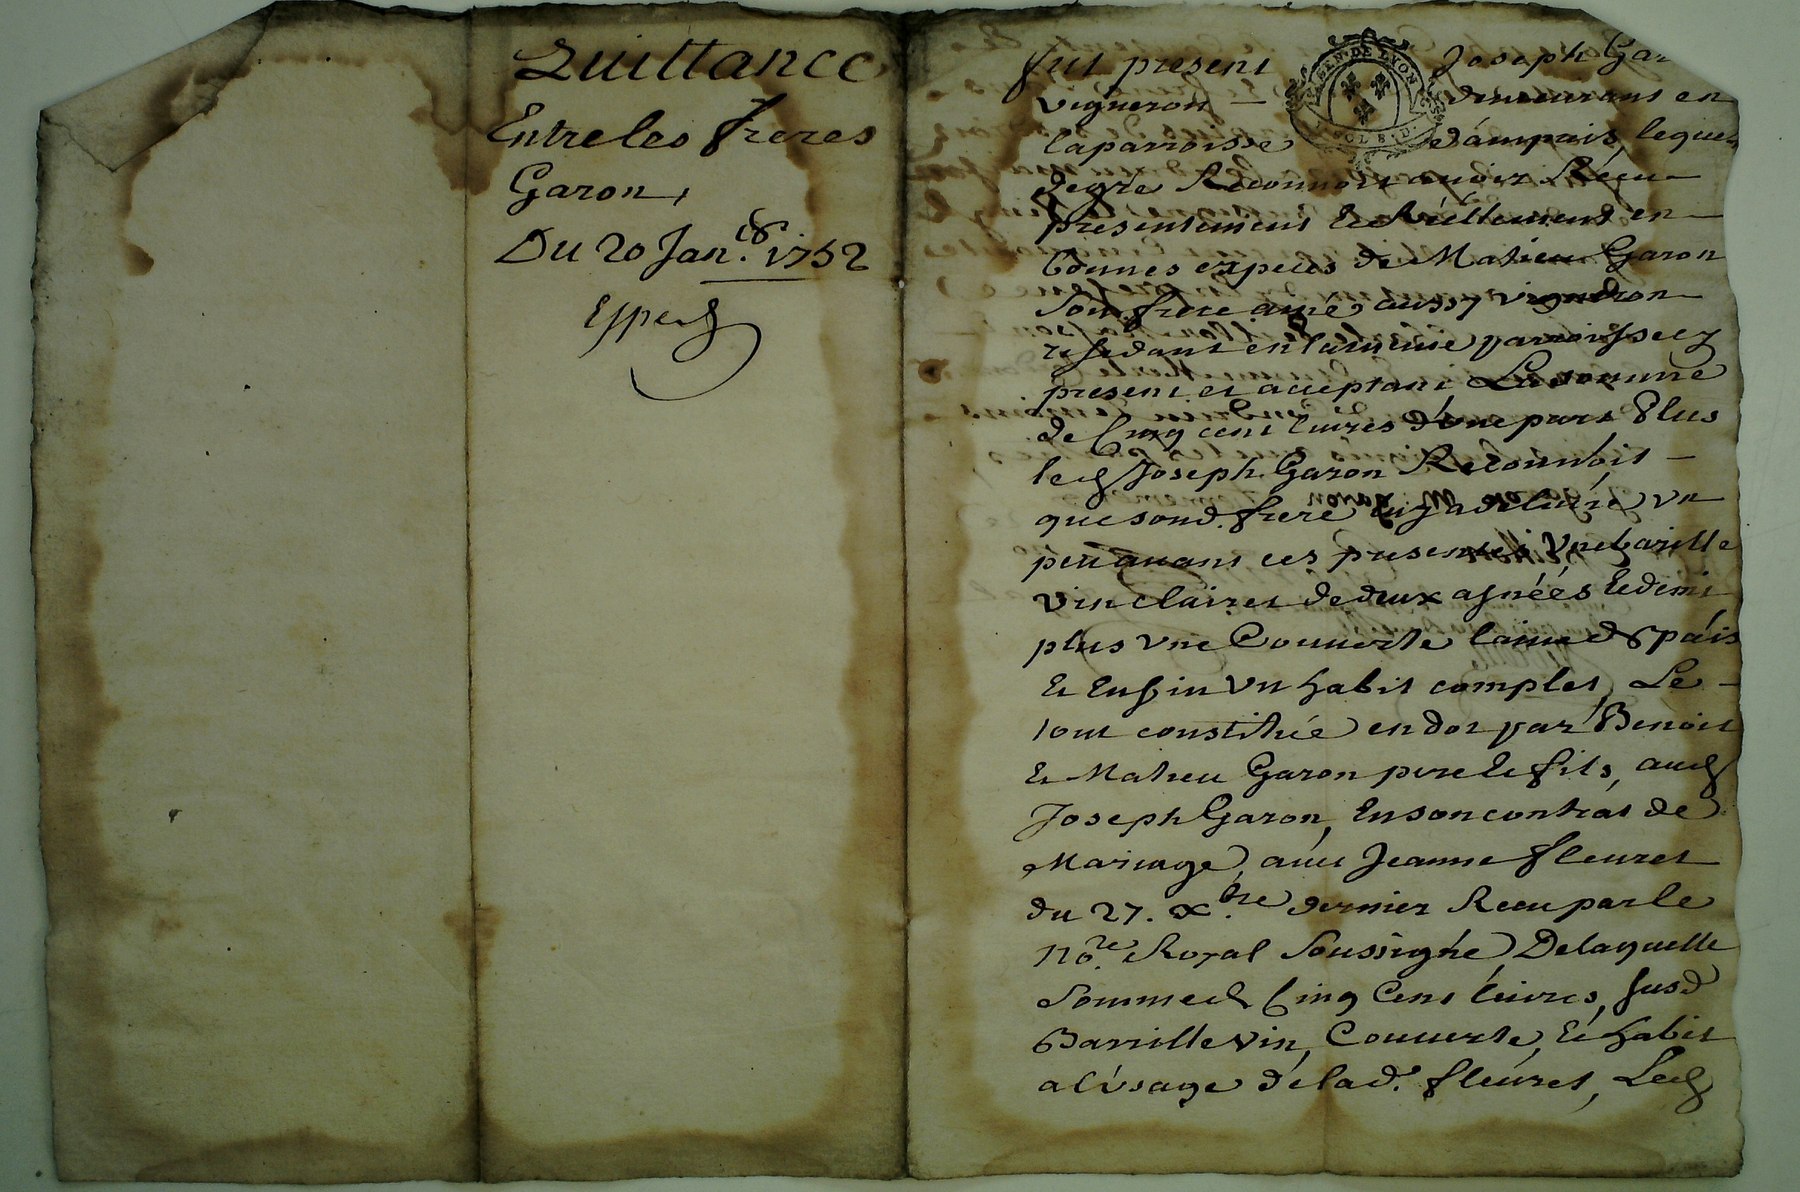 Quittance
Entre les freres
Garon,
Du 20 Jan.er 1752
Exped
GEN. DE LYON
SOL 8. D.
fut present Joseph Gar
vigneron – demeurant en
la parroisse d'ampuis, lequel
de gré Reconnoit avoir Reçu –
presentement & Réellement en –
bonnes especes de Mathieu Garon
son frere ainé, aussy vigneron –
residant en la meme parroisse cy
present et acceptant La somme
de Cinq cent livres d'une part Plus
led Joseph Garon Reconnoit –
que sond. frere luy a delivré vn
peu avant ces presentes Vne barille
vin clairet de deux asnéés & demi
plus vne Couverte laine d
& Enfin vn habit complet, Le –
tout constitué en dot par Benoit
& Matieu Garon pere & fils, aud
Joseph Garon, En son contrat de
Mariage, avec Jeanne fleuret
du 27. xbre dernier Recu par le
No.re Royal Soussigné, De laquelle
Somme d Cinq Cent livres, susd
Barrille vin, Couverte, & habit
a l'vsage de lad. fleuret, Led